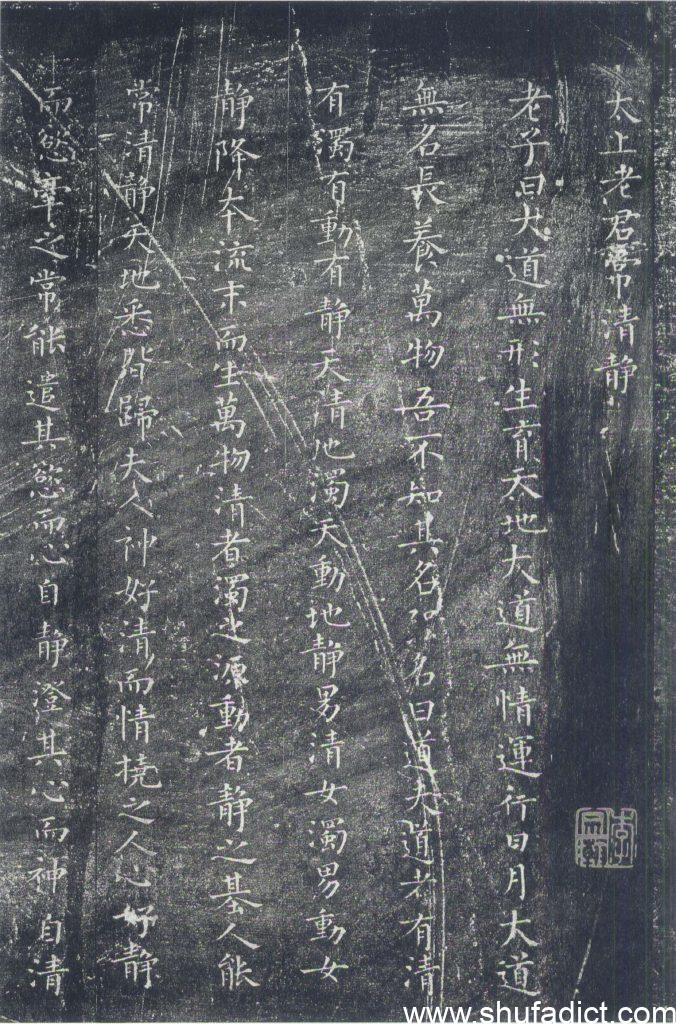 太上老君常清静
老子曰大道無形生育天地大道無情運行日月大道
無名長養萬物吾不知其名强名曰道夫道者有清
有濁有動有静天清地濁天動地静男清女濁男動女
静降本流末而生萬物清者濁之源動者静之基人能
常清静天地悉皆歸夫人神好清而情撓之人心好静
而慾牽之常能遣其慾而心自静澄其心而神自清
www.shufadict.com